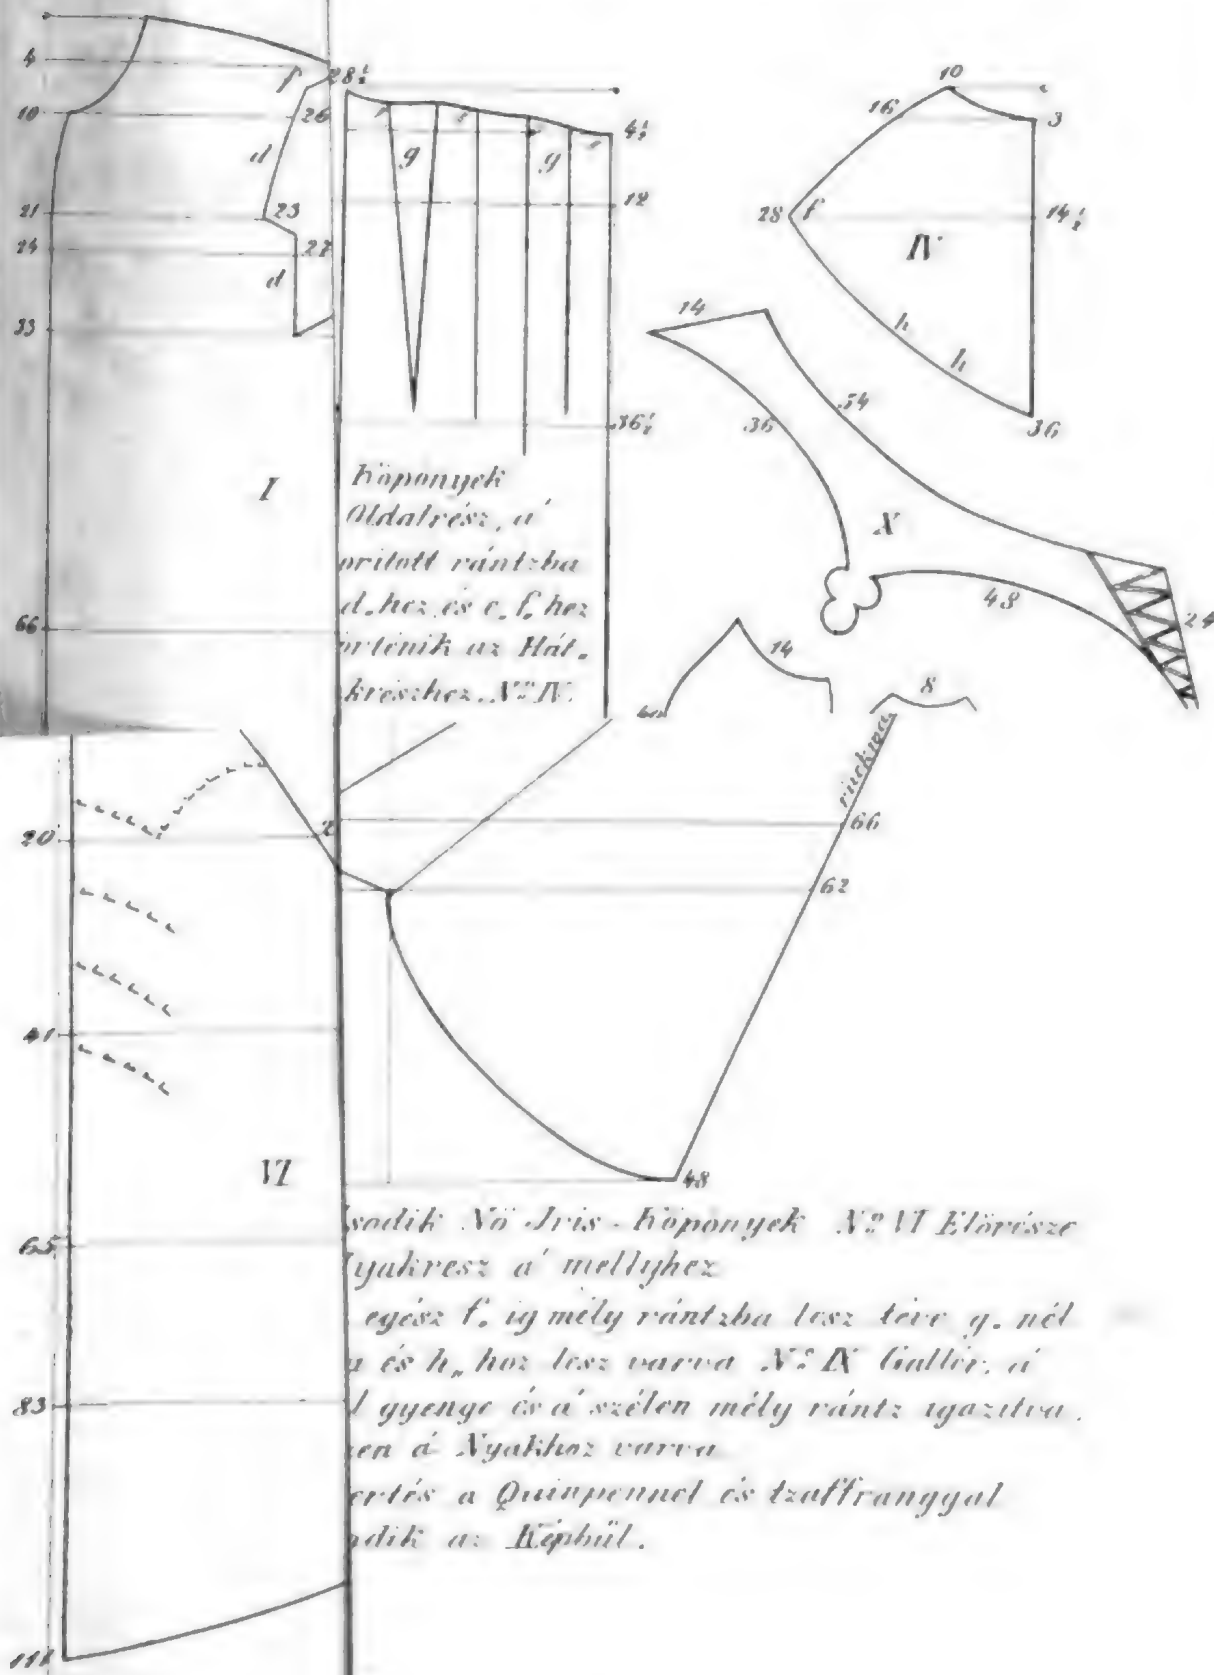 4
10
21
24
33
66
f
d
d
28½
26
23
22
I
g
g
4½
12
36½
Köponyek
Oldalrész, a'
oritott rántzba
d. hez és e. f. hez
örténik az Hát.
krészhez. Nº IV.
10
16
3
28
f
14½
IV
h
h
36
14
34
36
X
48
24
14
8
ruckwa
66
62
48
20
41
65
83
111
VI
sodik Nö Iris-Köponyek Nº VI Elörésze
yakresz a' mellyhez
egész f. ig mély rántzba lesz téve g. nél
a és h,, hoz lesz varva Nº IX Gallér, a'
l gyenge és a' szélen mély rántz igazitva.
en a' Nyakhoz varva
ertés a Quinpennel és tzaffranggyal
odik az Képbül.